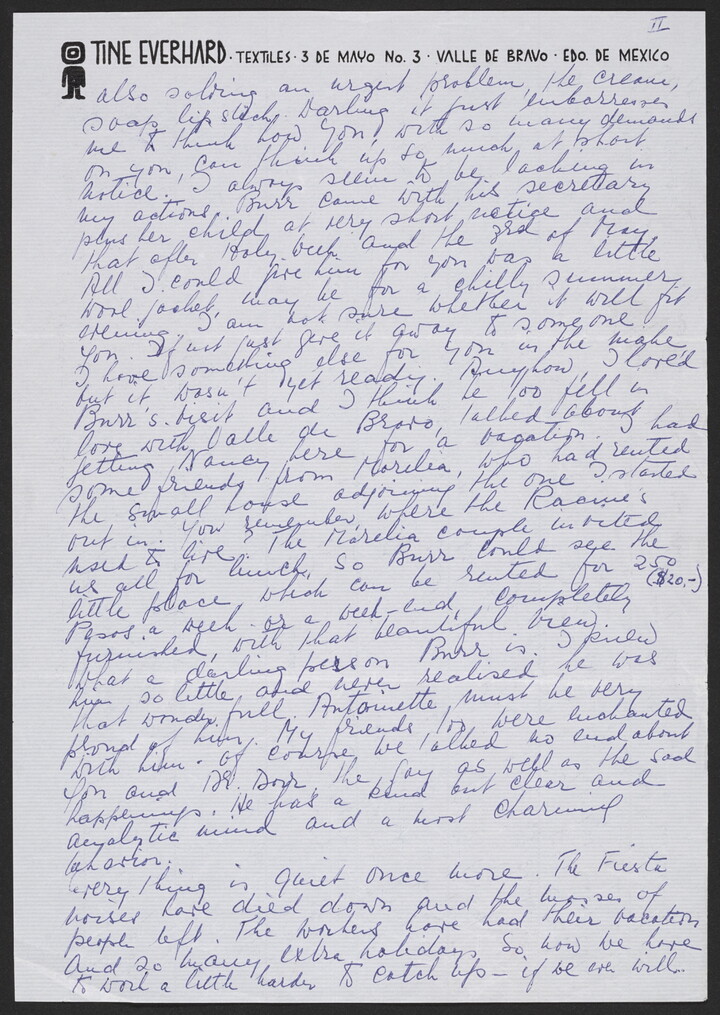 II
TINE EVERHARD · TEXTILES · 3 DE MAYO No. 3 · VALLE DE BRAVO · EDO. DE MEXICO
also solving an urgent problem, the cream,
soap, lipstick. Darling it just embarresses
me to think how you, with so many demands
on you, can think up so much at short
notice. I always seem to be lacking in
my actions. Burr came with his secretary
plus her child at very short notice and
that after Holy Week and the 3rd of May
All I could give him for you was a little
wool jacket, may be for a chilly summer
evening. I am not sure whether it will fit
you. If not just give it away to someone.
I have something else for you in the make
but it wasn't yet ready. Anyhow, I loved
Burr's visit and I think he too fell in
love with Valle de Bravo, talked about
getting Nancy here for a vacation. I had
some friends from Morelia, who had rented
the small house adjoining the one I started
out in. You remember, where the
used to live? The Morelia couple invited
us all for lunch, so Burr could see the
little place which can be rented for 250
($20.-)
Pesos a week or a week-end, completely
furnished, with that beautiful view.
What a darling person Burr is. I knew
him so little and never realised he was
that wonderfull. Antoinette must be very
proud of him. My friends too were enchanted
with him. Of course we talked no end about
you and Dr. the gay as well as the sad
happenings. He has a kind but clear and
analytic mind and a most charming
behavior.
Everything is quiet once more. The Fiesta
noises have died down and the masses of
people left. The workers have had their vacation
And so many extra holidays so now we have
to work a little harder to catch up – if we ever will.